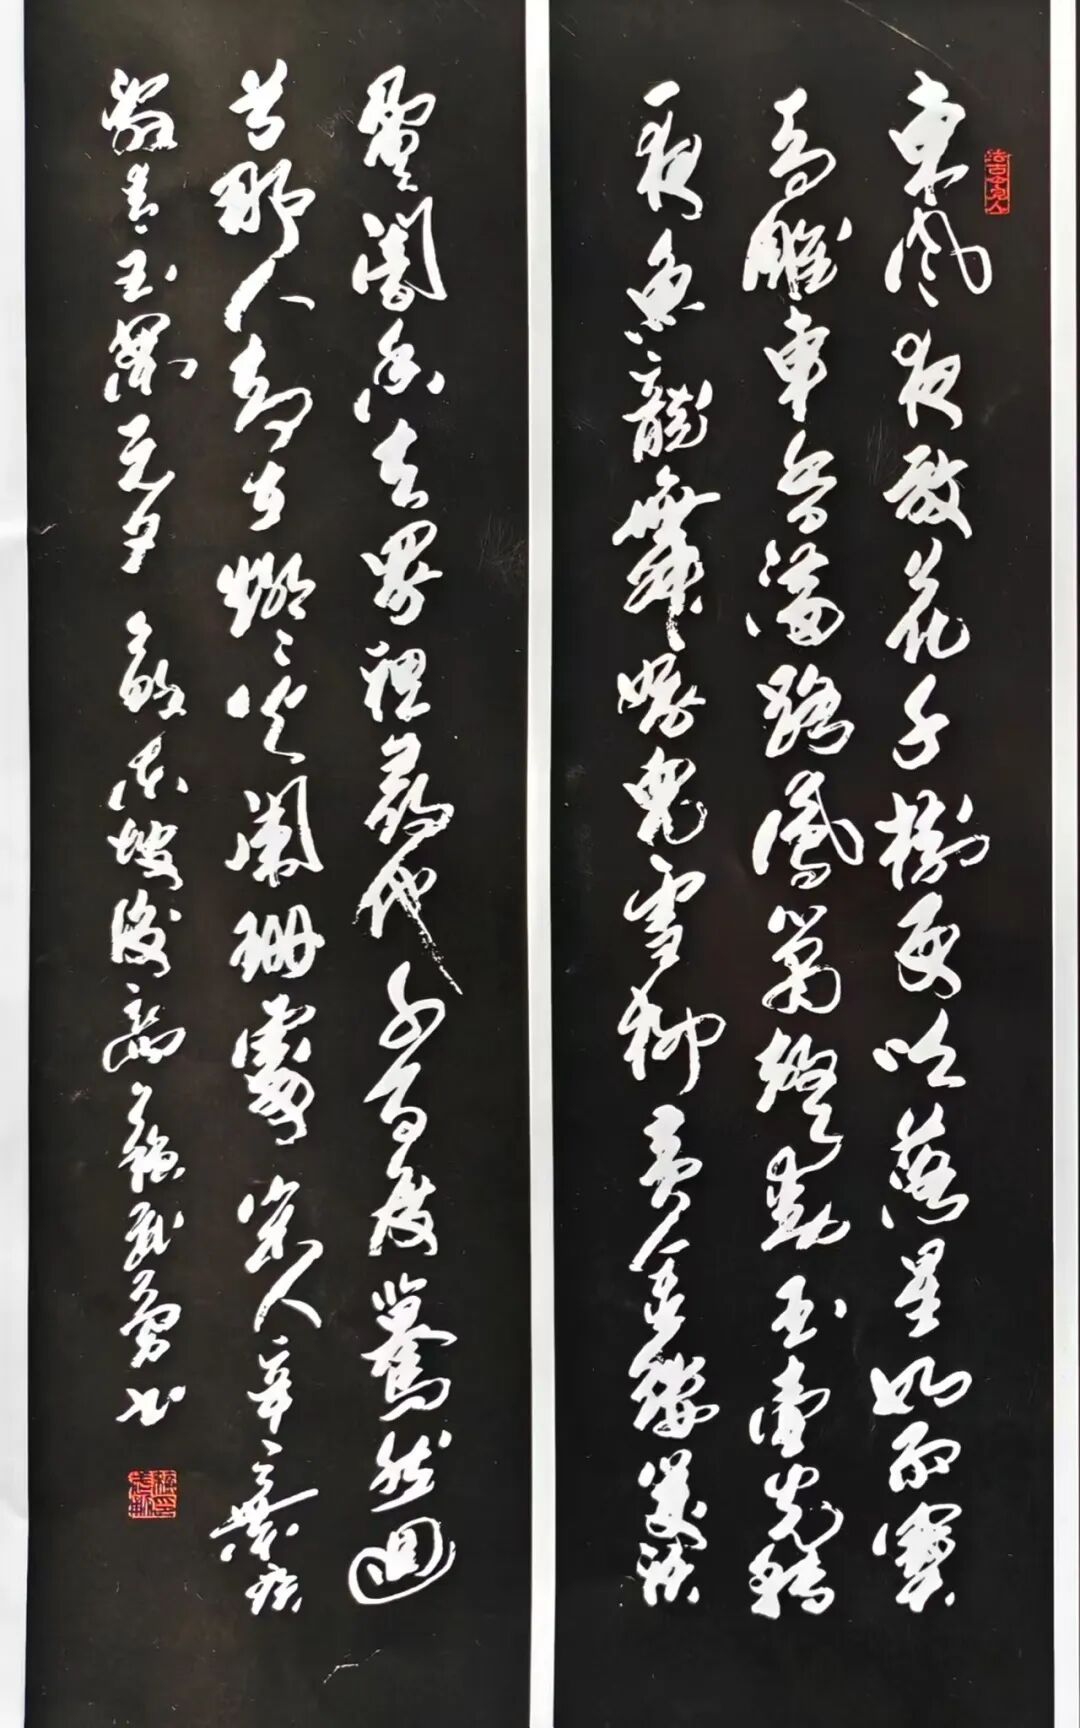 東風夜放花千樹更吹落星如雨寶
馬雕車香滿路鳳簫聲動玉壺光轉
一夜魚龍舞蛾兒雪柳黃金縷笑語
盈盈暗香去眾裡尋他千百度驀然回
首那人卻在燈火闌珊處宋人辛棄疾
青玉案元夕